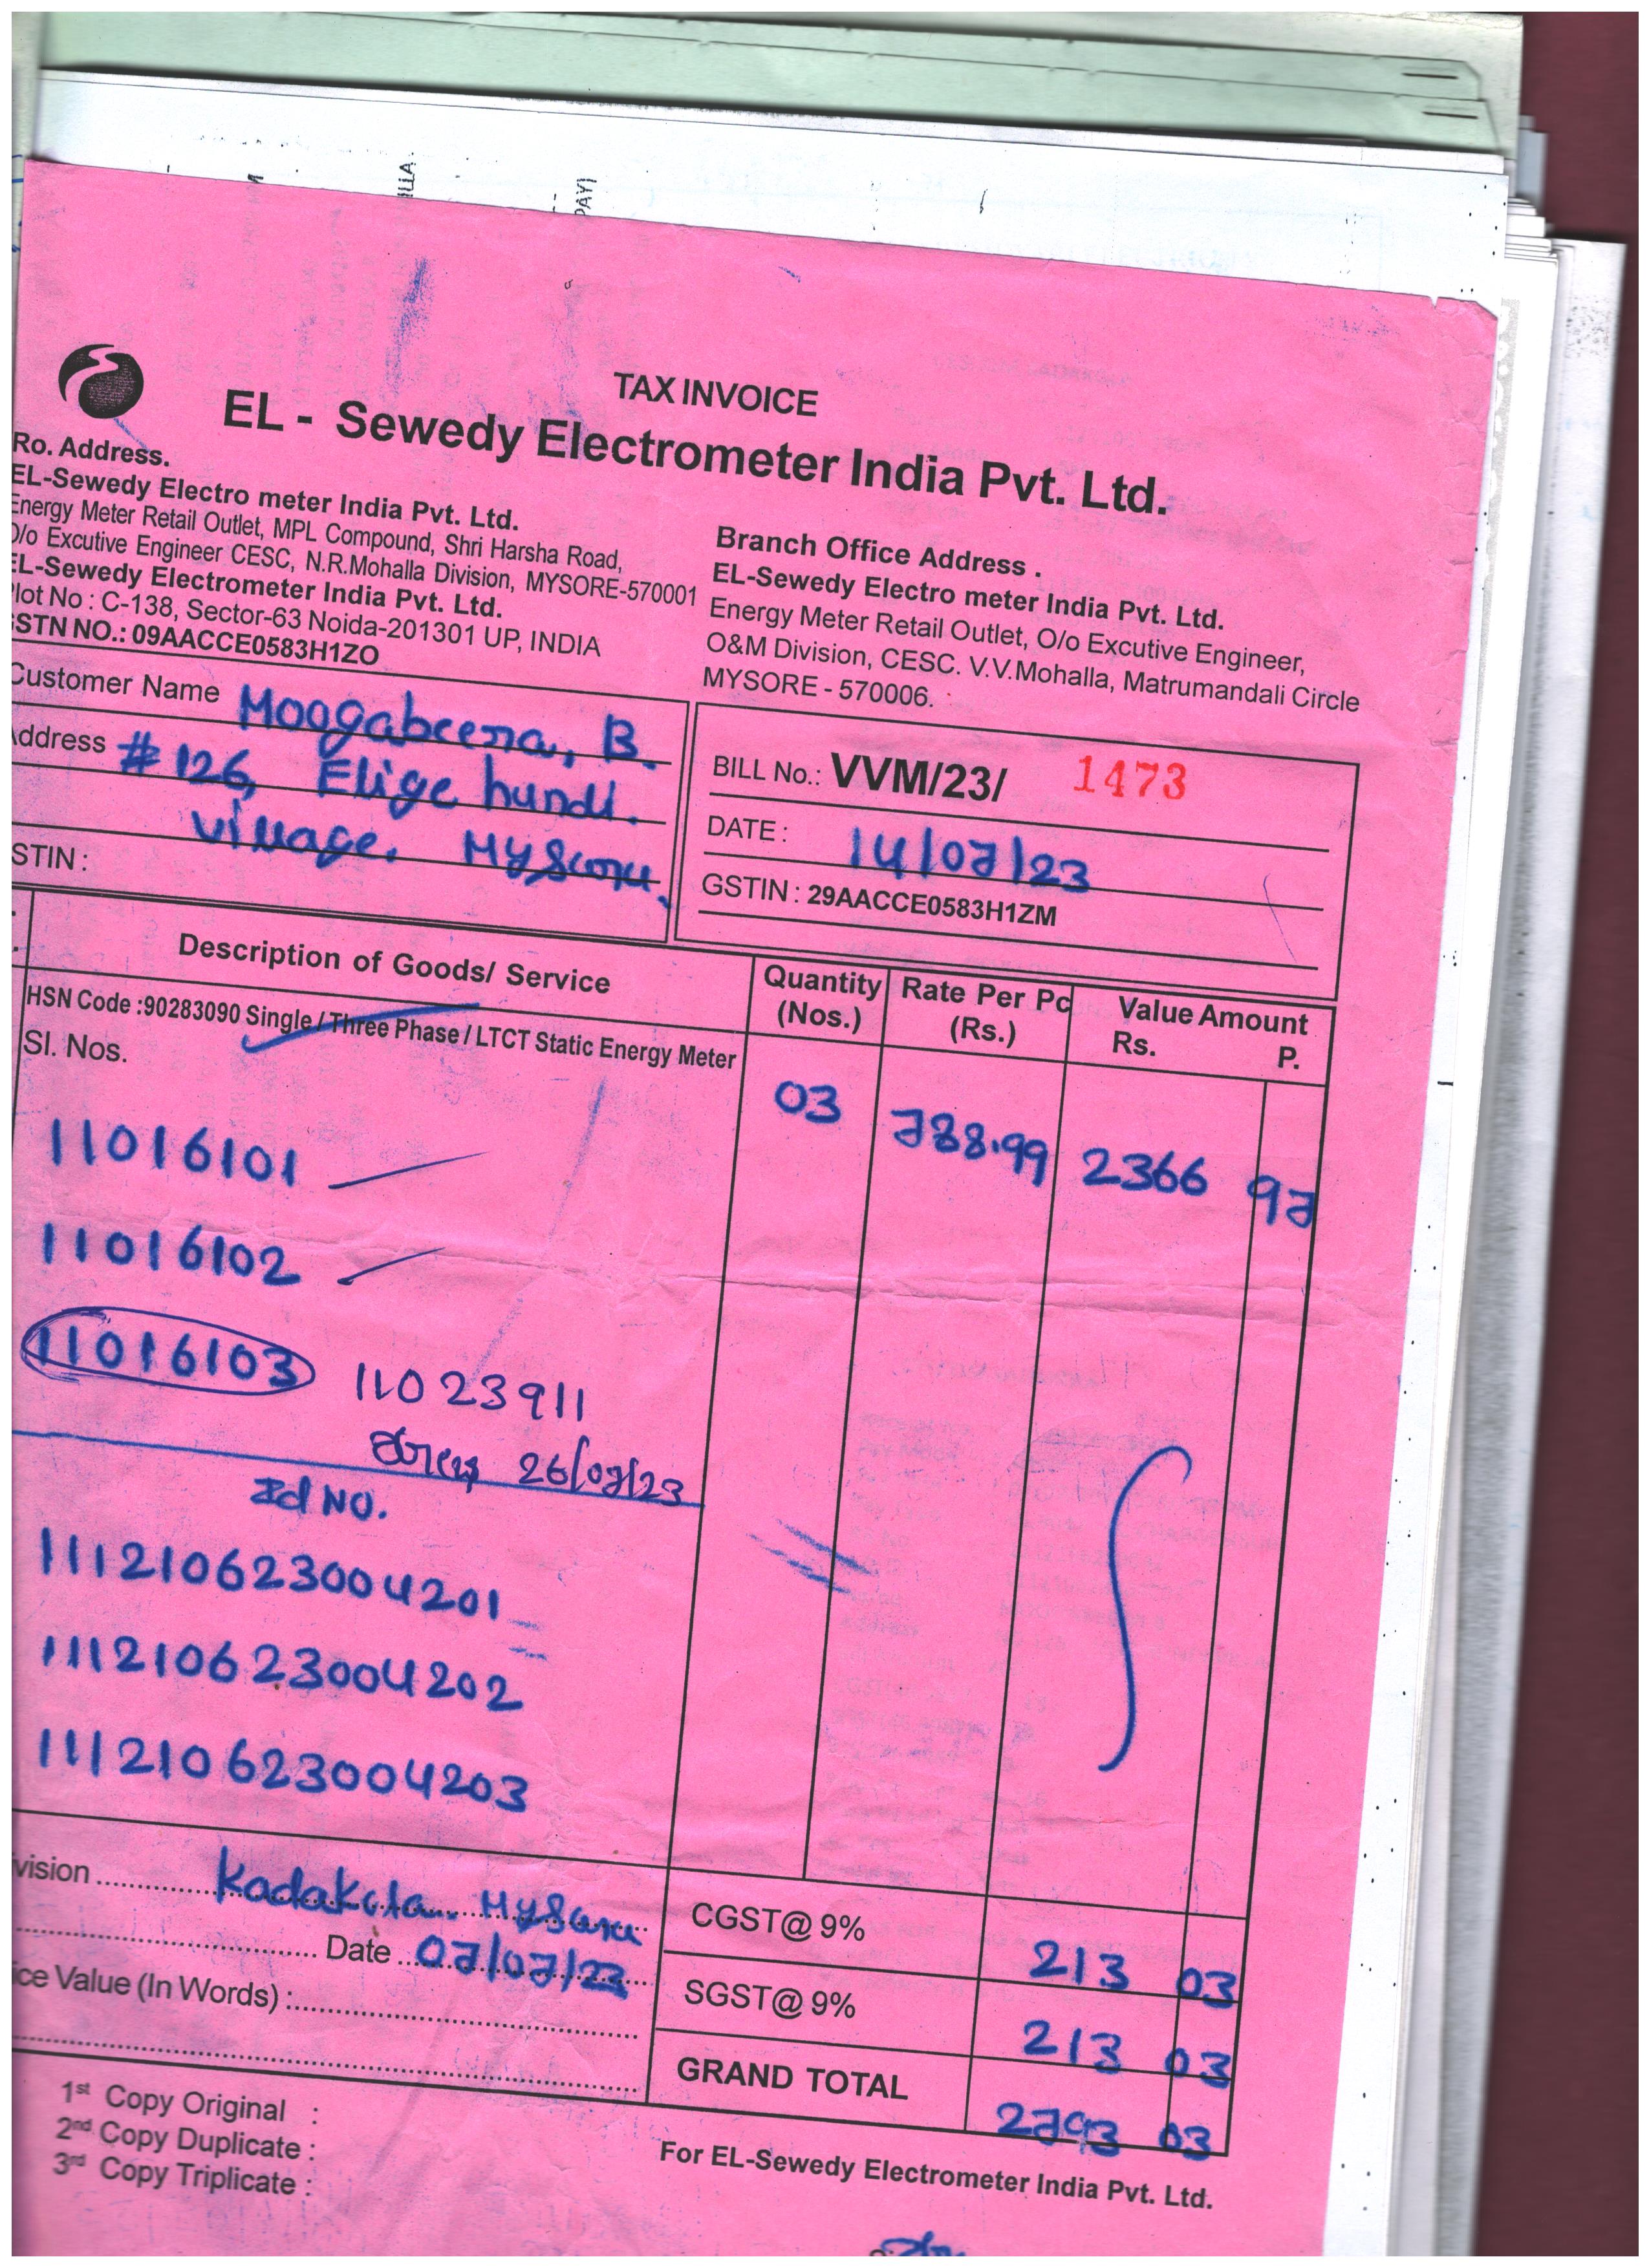 TAX INVOICE
EL - Sewedy Electrometer India Pvt. Ltd.
Ro. Address.
EL-Sewedy Electro meter India Pvt. Ltd.
Energy Meter Retail Outlet, MPL Compound, Shri Harsha Road,
O/o Excutive Engineer CESC, N.R.Mohalla Division, MYSORE-570001
EL-Sewedy Electrometer India Pvt. Ltd.
Plot No : C-138, Sector-63 Noida-201301 UP, INDIA
GSTN NO.: 09AACCE0583H1ZO
Branch Office Address .
EL-Sewedy Electro meter India Pvt. Ltd.
Energy Meter Retail Outlet, O/o Excutive Engineer,
O&M Division, CESC. V.V.Mohalla, Matrumandali Circle
MYSORE - 570006.
Customer Name Moogabeera, B.
Address #126, Elige hundi.
village. Mysoru.
GSTIN :
BILL No.: VVM/23/ 1473
DATE : 14/07/23
GSTIN : 29AACCE0583H1ZM
Description of Goods/ Service Quantity (Nos.) Rate Per Pc (Rs.) Value Amount Rs. P.
HSN Code :90283090 Single / Three Phase / LTCT Static Energy Meter
Sl. Nos.
03 788.99 2366 97
11016101
11016102
11016103 11023911
26/07/23
Id NO.
111210623004201
111210623004202
111210623004203
vision Kadakola. Mysuru
Date 07/07/23
ice Value (In Words) :
CGST@ 9% 213 03
SGST@ 9% 213 03
GRAND TOTAL 2793 03
1st Copy Original :
2nd Copy Duplicate :
3rd Copy Triplicate :
For EL-Sewedy Electrometer India Pvt. Ltd.